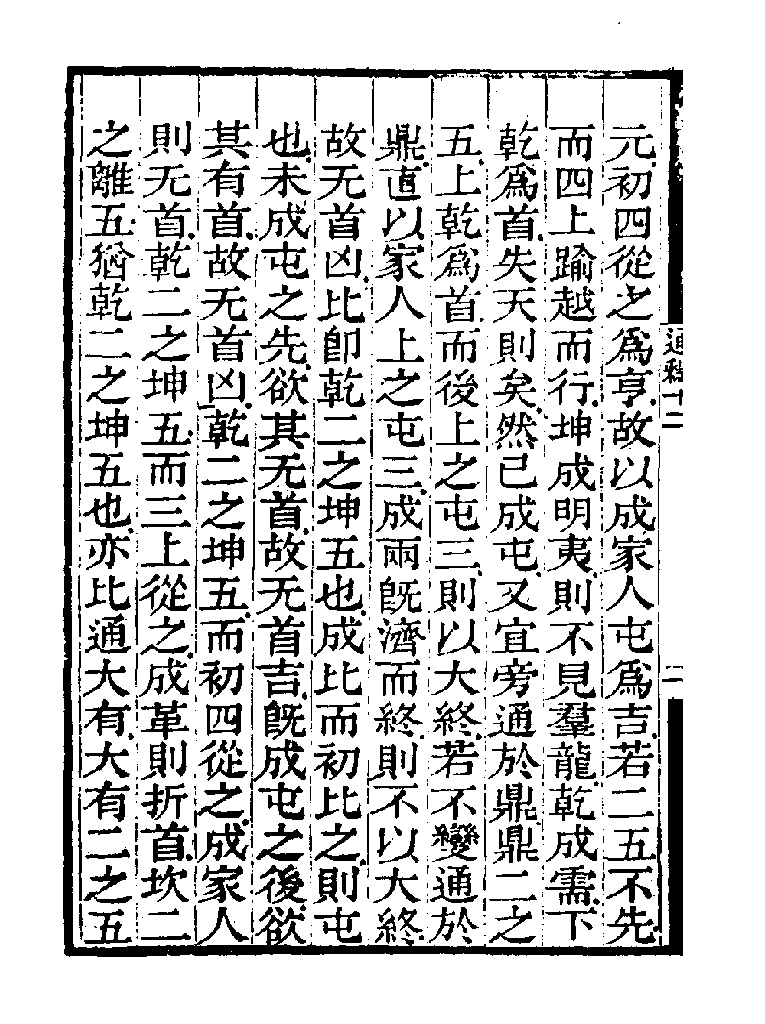 元初四從之爲亨故以成家人屯爲吉若二五不先
而四上踰越而行坤成明夷則不見羣龍乾成需下
乾爲首失天則矣然已成屯又宜旁通於鼎鼎二之
五上乾爲首而後上之屯三則以大終若不變通於
鼎直以家人上之屯三成兩旣濟而終則不以大終
故无首凶比卽乾二之坤五也成比而初比之則屯
也未成屯之先欲其无首故无首吉旣成屯之後欲
其有首故无首凶乾二之坤五而初四從之成家人
則无首乾二之坤五而三上從之成革則折首坎二
之離五猶乾二之坤五也亦比通大有大有二之五
通釋十二
二